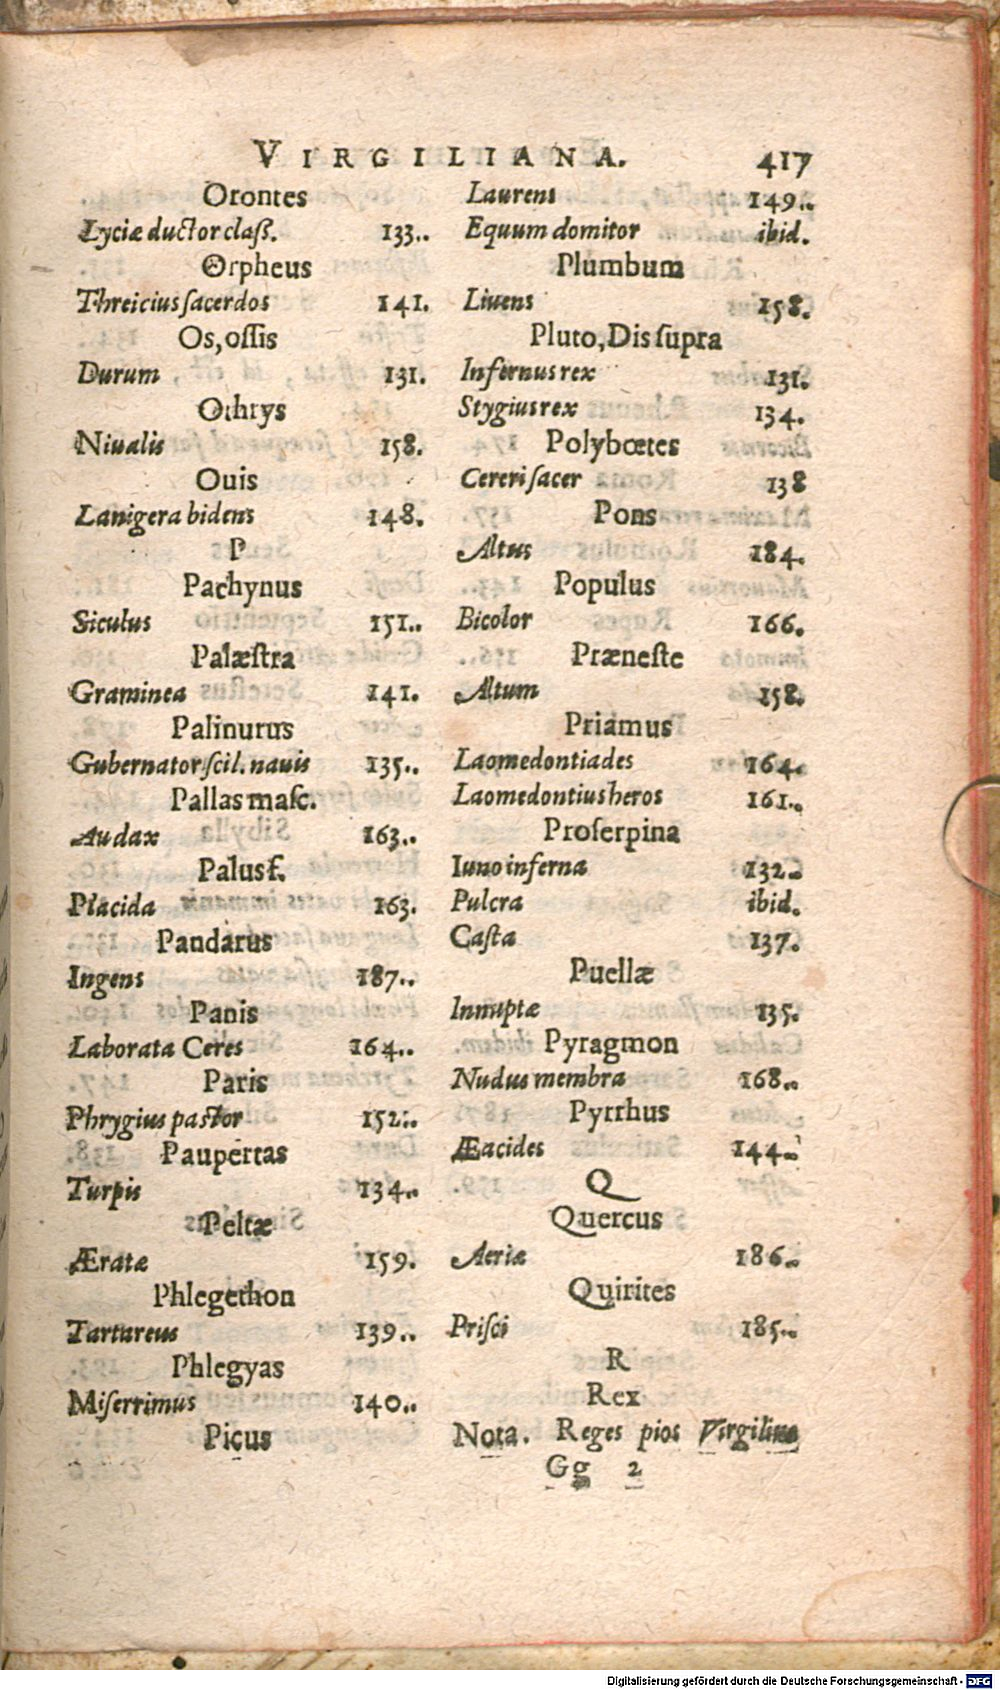 VIRGILIANA. 417
Orontes
Lyciæ ductor claſſ. 133..
Orpheus
Threicius ſacerdos 141.
Os, oſſis
Durum 131.
Othrys
Niualis 158.
Ouis
Lanigera bidens 148.
P
Pachynus
Siculus 151..
Palæſtra
Graminea 141.
Palinurus
Gubernator ſcil. nauis 135..
Pallas maſc.
Audax 163..
Palus f.
Placida 163.
Pandarus
Ingens 187..
Panis
Laborata Ceres 164..
Paris
Phrygius paſtor 152..
Paupertas
Turpis 134..
Peltæ
Æratæ 159.
Phlegethon
Tartareus 139..
Phlegyas
Miſerrimus 140..
Picus
Laurens 149..
Equum domitor ibid.
Plumbum
Liuens 158.
Pluto, Dis ſupra
Infernus rex 131.
Stygius rex 134.
Polybœtes
Cereri ſacer 138
Pons
Altus 184.
Populus
Bicolor 166.
Præneſte
Altum 158.
Priamus
Laomedontiades 164.
Laomedontius heros 161..
Proſerpina
Iuno inferna 132..
Pulcra ibid.
Caſta 137.
Puellæ
Innuptæ 135.
Pyragmon
Nudus membra 168..
Pyrrhus
Æacides 144..
Q
Quercus
Aeriæ 186..
Quirites
Priſci 185..
R
Rex
Nota. Reges pios Virgilius
Gg 2
Digitalisierung gefördert durch die Deutsche Forschungsgemeinschaft - DFG